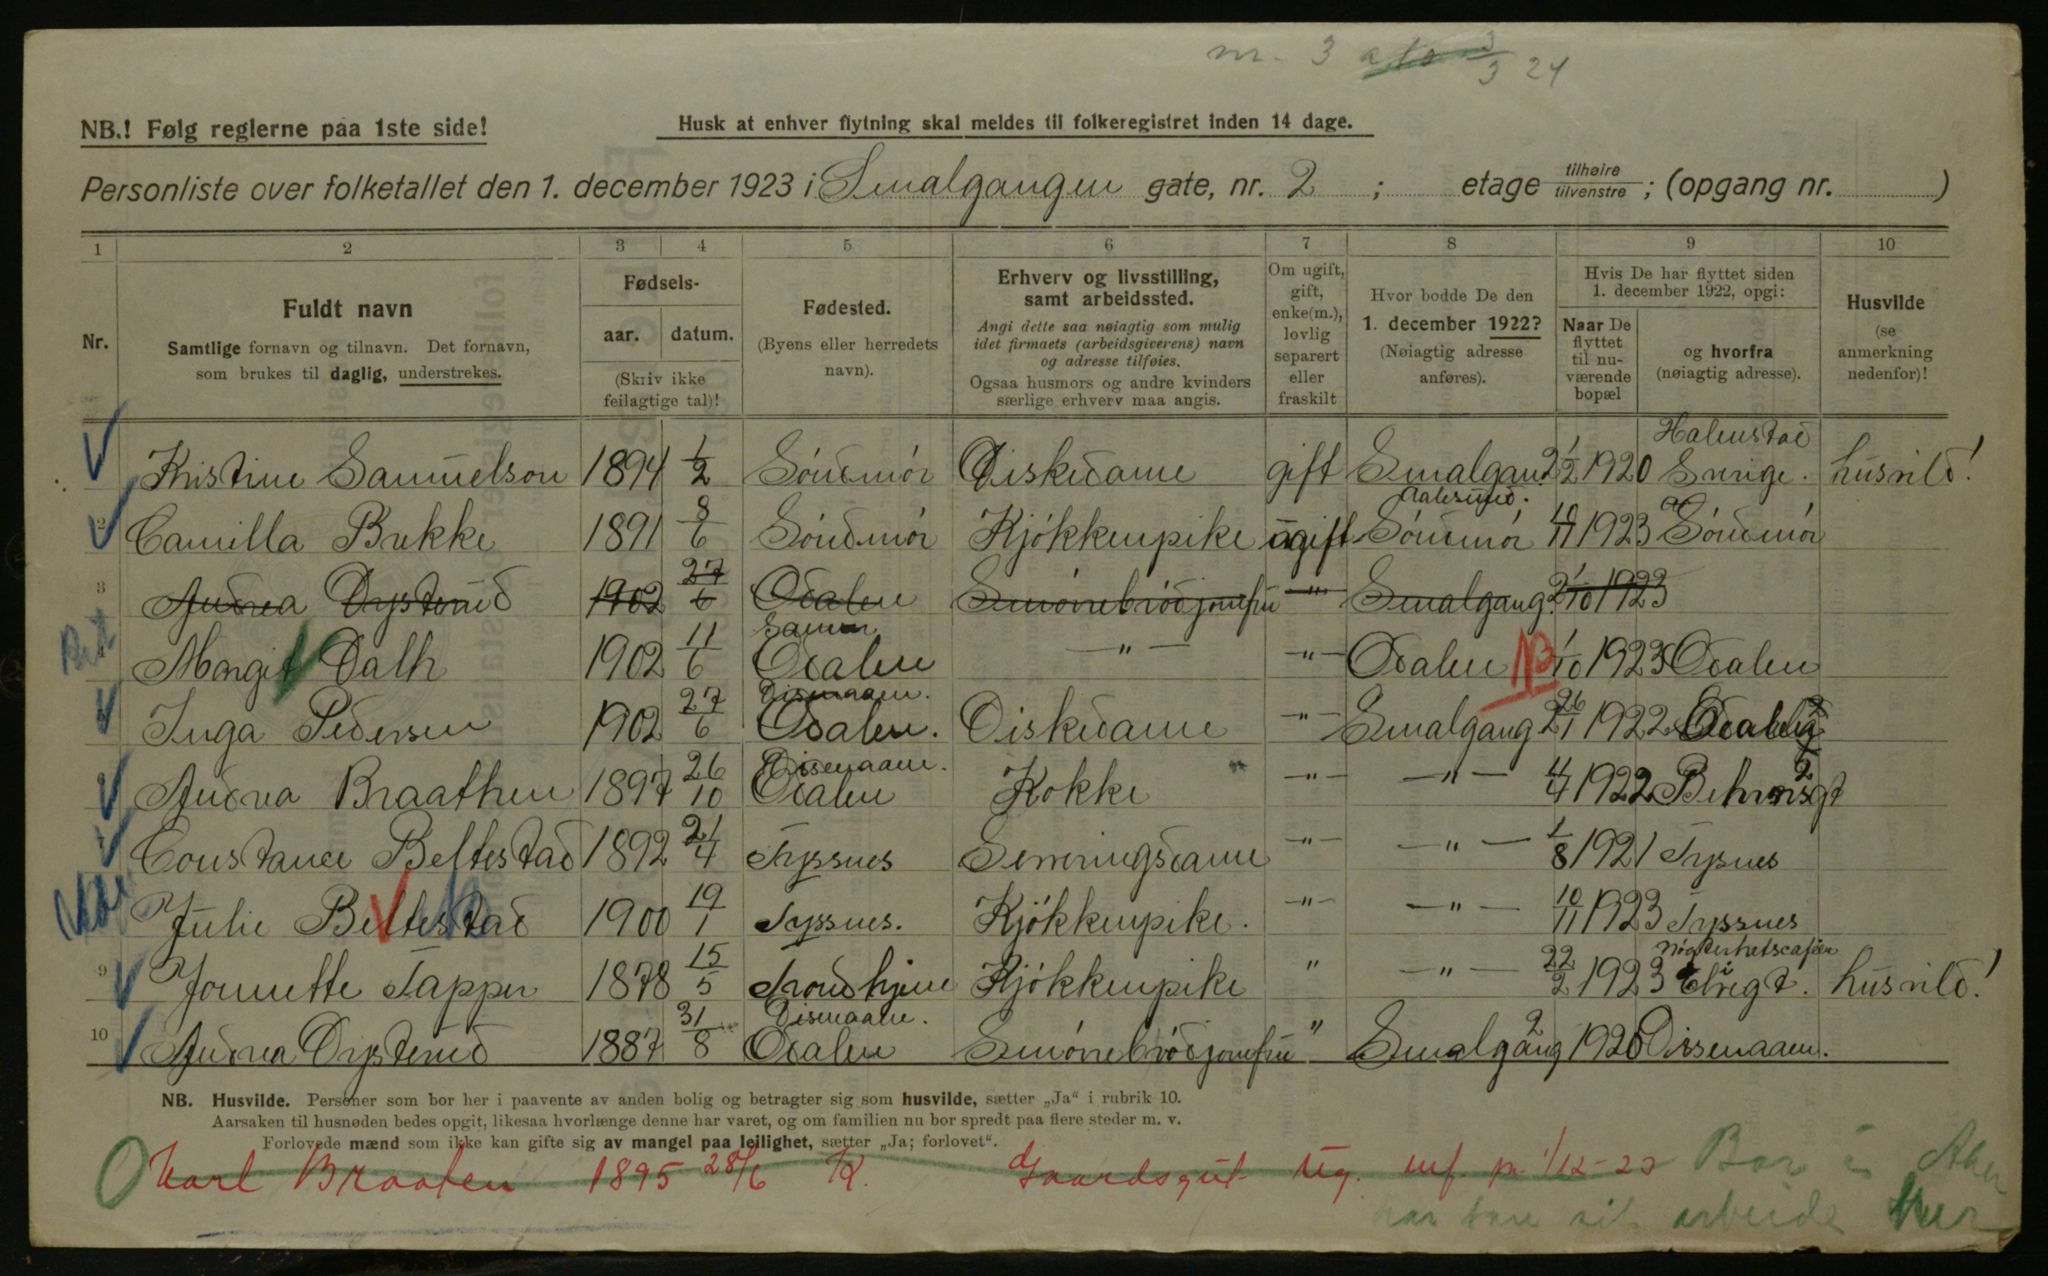 nr. 3 3/3 24
NB.! Følg reglerne paa 1ste side!
Husk at enhver flytning skal meldes til folkeregistret inden 14 dage.
Personliste over folketallet den 1. december 1923 i Smalgangen gate, nr. 2 ; etage tilhøire/tilvenstre ; (opgang nr. )
1 2 3 4 5 6 7 8 9 10
Nr.
Fuldt navn
Samtlige fornavn og tilnavn. Det fornavn,
som brukes til daglig, understrekes.
Fødsels-
aar. datum.
(Skriv ikke
feilagtige tal)!
Fødested.
(Byens eller herredets
navn).
Erhverv og livsstilling,
samt arbeidssted.
Angi dette saa nøiagtig som mulig
idet firmaets (arbeidsgiverens) navn
og adresse tilføies.
Ogsaa husmors og andre kvinders
særlige erhverv maa angis.
Om ugift,
gift,
enke(m.),
lovlig
separert
eller
fraskilt
Hvor bodde De den
1. december 1922?
(Nøiagtig adresse
anføres).
Hvis De har flyttet siden
1. december 1922, opgi:
Naar De
flyttet
til nu-
værende
bopæl
og hvorfra
(nøiagtig adresse).
Husvilde
(se
anmerkning
nedenfor)!
Kristine Samuelson 1894 1/2 Söndmör Diskedame gift Smalgan. 2 1/2 1920 Halmstad Sverige. husvild!
2 Camilla Bukke 1891 8/6 Söndmör Kjökkenpike ugift Aalesund. Söndmör 1923 Söndmör
3 Andrea Dysterud 1902 27/6 Odalen Smörrebrödjomfru -"- Smalgang. 2 1/10 1923
4 Margit Dalh 1902 11/6 Odalen -"- -"- Odalen 1/10 1923 Odalen
Inga Pedersen 1902 27/6 Disenaaen. Odalen. Diskedame -"- Smalgang 2 26/1 1922
Andrea Braathen 1897 26/10 Disenaaen. Odalen Kokke -"- -"- 1922
Constance Beltestad 1892 21/4 Tyssnes Serveringsdame -"- -"- 1/8 1921 Tysnes
Julie Beltestad 1900 19/1 Tyssnes. Kjökkenpike. -"- -"- 10/11 1923 Tyssnes
9 Jonnette Tapper 1878 15/5 Trondhjem Kjökkenpike " -"- 22/2 1923 Elvegt. husvild!
10 Andrea Dysterud 1887 31/8 Disenaaen. Odalen Smörrebrödjomfru " Smalgang 2 1920 Dissenaaen.
NB. Husvilde. Personer som bor her i paavente av anden bolig og betragter sig som husvilde, sætter „Ja“ i rubrik 10.
Aarsaken til husnøden bedes opgit, likesaa hvorlænge denne har varet, og om familien nu bor spredt paa flere steder m. v.
Forlovede mænd som ikke kan gifte sig av mangel paa leilighet, sætter „Ja; forlovet“.
Karl Braaten 1895 28/6 K. Gaardsgut ug. inf. pr. 1/12-23 Bor i Aker
har bare sit arbeide her